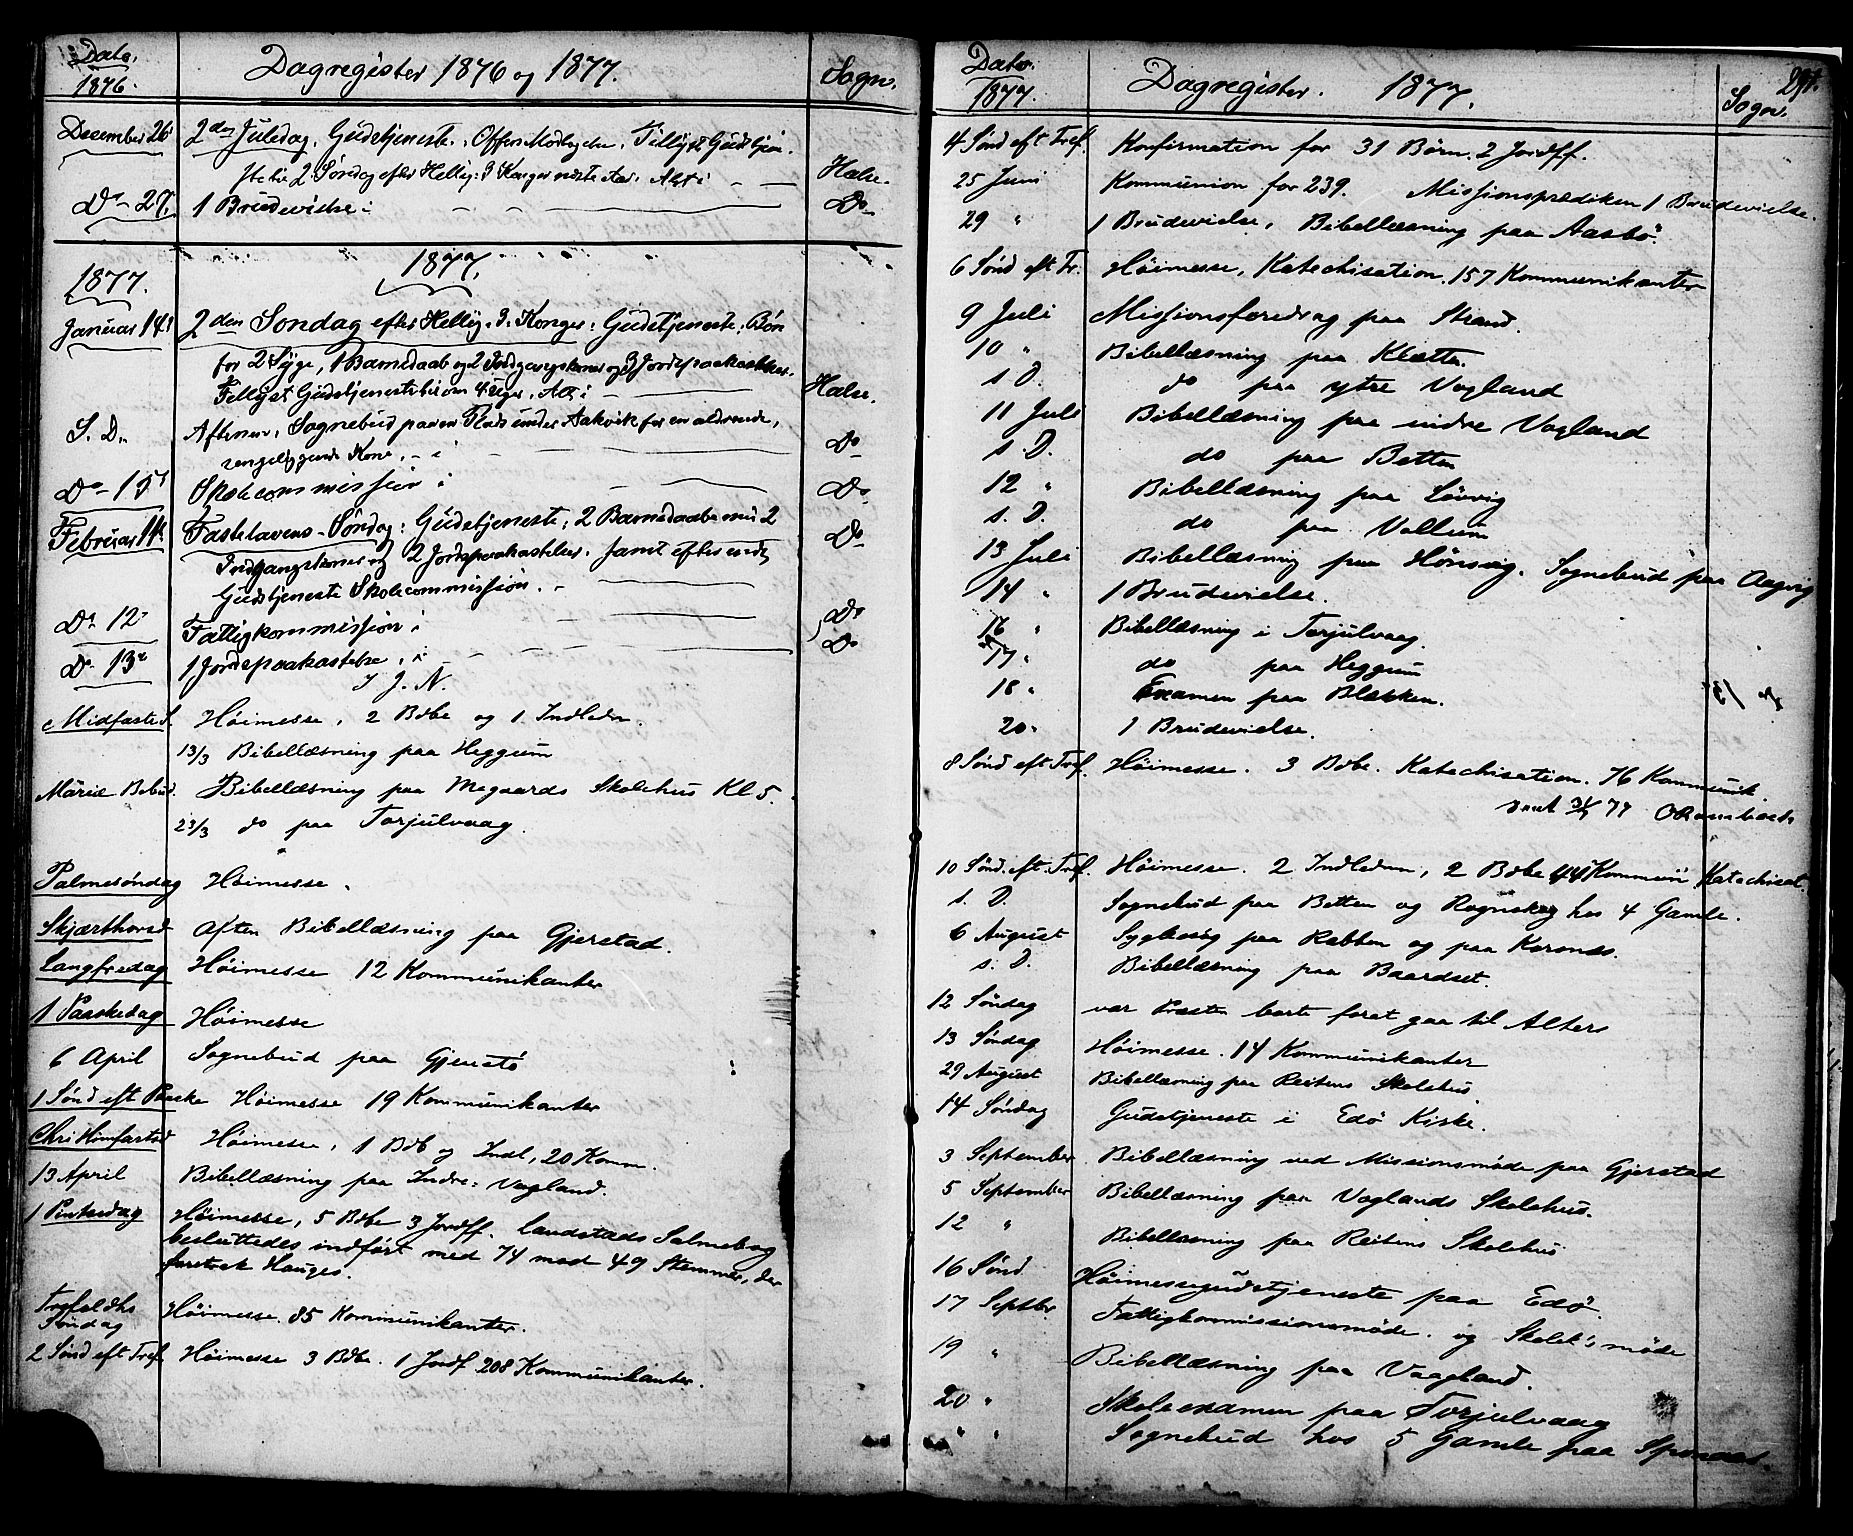 Dato.
1876.
Dagregister 1876 og 1877.
Sogn.
Desember 26de 2den Juledag, Gudstjeneste.
2 Søndag efter Hellig: 3 Konger
Halse.
Do 27. 1 Brudevielse i Do
1877.
1877.
Januar 14de 2den Søndag efter Hellig. 3. Konger: Gudstjeneste; Bøn
for 2 Syge, 1 Barnedaab og 2 og 3 Jordspaakastelser.
Tillyst Gudstjeneste her om 4 Uger. Alt i Halse.
S. D. Aftenen, Sognebud paa en Plads under Aakvik for en aldrende,
sengeliggende Kone, i Do
Do 15de Skolecommission i Do
Februar 11te Fastelavens-Søndag: Gudstjeneste; 2 Barnedaabe med 2
Indgangskoner og 2 Jordspaakastelser. Samt efter endt
Gudstjeneste Skolecommission. Do
Do 12te Fattigkommission i Do
Do 13de 1 Jordspaakastelse, i Do
I J. N.
Midfaste S. Høimesse, 2 Bdbe og 1 Indledn.
13/3 Bibellæsning paa Heggum
Mariæ Bebud. Bibellæsning paa Megaards Skolehus Kl 5.
23/3 do paa Torjulvaag.
Palmesøndag Høimesse.
Skjærthorsd Aften Bibellæsning paa Gjerstad.
Langfredag Høimesse 12 Kommunikanter
1 Paaskedag Høimesse
6 April Sognebud paa Gjenstø
1 Sønd eft Paaske Høimesse 19 Kommunikanter
Chri Himfartsd Høimesse, 1 Bdb og Indl, 20 Komm.
13 April Bibellæsning paa Indre: Vagland.
1 Pintsedag Høimesse, 5 Bdbe 3 Jordff. Landstads Salmebog
besluttedes indført med 74 mod 49 Stemmer, der
foretrak Hauges.
Trefoldhs
Søndag Høimesse. 85 Kommunikanter.
2 Sønd eft Tref. Høimesse 3 Bdbe. 1 Jordf 208 Kommunikanter.
Dato.
1877.
Dagregister. 1877.
Sogn.
291.
4 Sønd eft Tref. Konfirmation for 31 Børn. 2 Jordff.
25 Juni Kommunion for 239. Missionsprædiken 1 Brudevielse.
29 " 1 Brudevielse, Bibellæsning paa Aasbø.
6 Sønd eft Tr. Høimesse, Katechisation. 157 Kommunikanter
9 Juli Missionsforedrag paa Strand.
10 " Bibellæsning paa Kletten
s D. do paa ytre Vagland
11 Juli Bibellæsning paa indre Vagland
s. D. do paa Betten
12 " Bibellæsning paa Løvvig
s. D. do paa Vullum
13 Juli Bibellæsning paa Hønsvig. Sognebud paa Aagvig
14 " 1 Brudevielse.
16 " Bibellæsning i Torjulvaag.
17 " do paa Heggum
18 " Examen paa Blakken.
20 " 1 Brudevielse.
8 Sønd eft Tref. Høimesse. 3 Bdbe. Katechisation. 76 Kommunik.
10 Sønd. eft. Tref. Høimesse. 2 Indledn, 2 Bdbe 44 Kommun Katechisat.
s. D. Sognebud paa Betten og Rognskog hos 4 Gamle.
6 August Sygbesøg paa Rabben og paa Korsnæs.
s. D. Bibellæsning paa Baardset.
12 Søndag var Præsten borte foret gaa til Alters
13 Søndag Høimesse. 14 Kommunikanter
29 August Bibellæsning paa Reitens Skolehus.
14 Søndag Gudstjeneste i Edø Kirke.
3 September Bibellæsning ved Missionsmøde paa Gjerstad
5 September Bibellæsning paa Vaglands Skolehus.
12 " Bibellæsning paa Reitens Skolehus
16 Sønd. Høimessegudstjeneste paa Edø.
17 Septbr. Fattigkommissionsmøde. og Skolek's møde
19 " Bibellæsning paa Vaagland.
20 " Skoleexamen paa Torjulvaag
" " Sognebud hos 5 Gamle paa